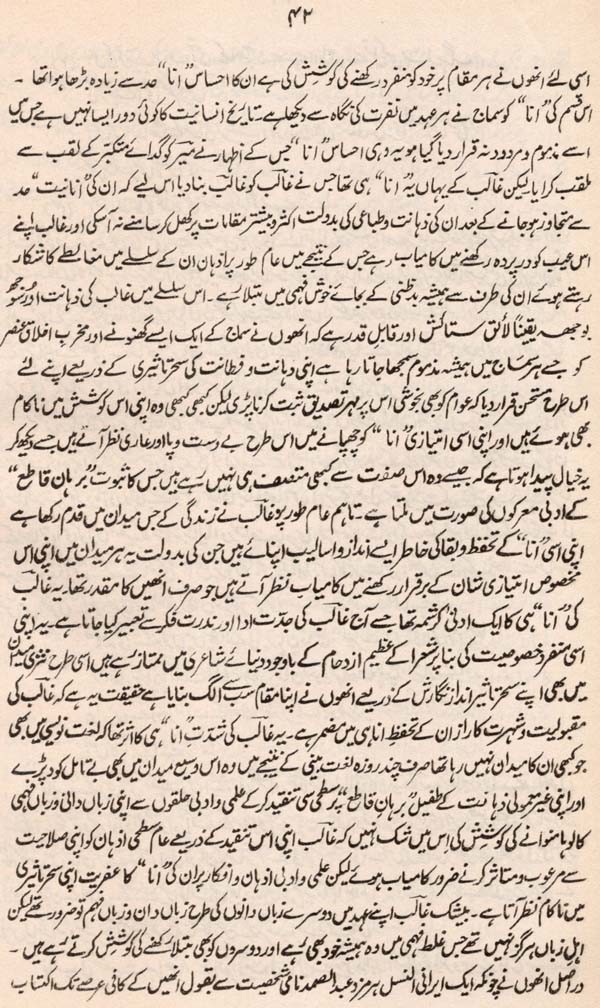 ۴۲
اسی لئے انھوں نے ہر مقام پر خود کو منفرد رکھنے کی کوشش کی ہے ان کا احساس ”انا“ حد سے زیادہ بڑھا ہوا تھا ۔
اس قسم کی ”انا“ کو سماج نے ہر عہد میں نفرت کی نگاہ سے دیکھا ہے۔ تاریخ انسانیت کا کوئی دور ایسا نہیں ہے جس میں
اسے مذموم و مردود نہ قرار دیا گیا ہو یہ وہی احساس ”انا“ جس کے اظہار نے میر کو گدائے متکبر کے لقب سے
ملقب کرایا لیکن غالب کے یہاں یہ ”انا“ ہی تھا جس نے غالب کو غالب بنا دیا اس لیے کہ ان کی ”انانیت“ حد
سے متجاوز ہو جانے کے بعد ان کی ذہانت و طباعی کی بدولت اکثر و بیشتر مقامات پر کھل کر سامنے نہ آسکی اور غالب اپنے
اس عیب کو در پردہ رکھنے میں کامیاب رہے جس کے نتیجے میں عام طور پر اذہان ان کے سلسلے میں مغالطے کا شکار
رہتے ہوئے ان کی طرف سے ہمیشہ بدظنی کے بجائے خوش فہمی میں مبتلا رہے ۔ اس سلسلے میں غالب کی ذہانت اور سوجھ
بوجھ یقیناً لائق ستائش اور قابل قدر ہے کہ انھوں نے سماج کے ایک ایسے گھنونے اور مخرب اخلاق عنصر
کو جسے ہر سماج میں ہمیشہ مذموم سمجھا جاتا رہا ہے اپنی ذہانت و فطانت کی سحر تاثیری کے ذریعے اپنے لئے
اس طرح مستحسن قرار دیا کہ عوام کو بھی بخوشی اس پر مہر تصدیق ثبت کرنا پڑی لیکن کبھی کبھی وہ اپنی اس کوشش میں ناکام
بھی ہوئے ہیں اور اپنی اسی امتیازی ”انا“ کو چھپانے میں اس طرح بے دست و پا اور عاری نظر آتے ہیں جسے دیکھ کر
یہ خیال پیدا ہوتا ہے کہ جیسے وہ اس صفت سے کبھی متصف ہی نہیں رہے ہیں جس کا ثبوت ”برہان قاطع“
کے ادبی معرکوں کی صورت میں ملتا ہے ۔ تاہم عام طور پر غالب نے زندگی کے جس میدان میں قدم رکھا ہے
اپنی اسی ”انا“ کے تحفظ و بقا کی خاطر ایسے انداز و اسالیب اپنائے ہیں جن کی بدولت یہ ہر میدان میں اپنی اس
مخصوص امتیازی شان کے برقرار رکھنے میں کامیاب نظر آتے ہیں جو صرف انھیں کا مقدر تھا۔ یہ غالب
کی ”انا“ ہی کا ایک ادنیٰ کرشمہ تھا جسے آج غالب کی جدّت ادا اور ندرت فکر سے تعبیر کیا جاتا ہے ۔ یہ اپنی
اسی منفرد خصوصیت کی بنا پر شعرا کے عظیم ازدحام کے باوجود دنیائے شاعری میں ممتاز رہے ہیں اسی طرح نثری میدان
میں بھی اپنے سحر تاثیر انداز نگارش کے ذریعے انھوں نے اپنا مقام سب سے الگ بنایا ہے حقیقت یہ ہے کہ غالب کی
مقبولیت و شہرت کا راز ان کے تحفظ انا ہی میں مضمر ہے ۔ یہ غالب کی شدّتِ ”انا“ ہی کا اثر تھا کہ لغت نویسی میں بھی
جو کبھی ان کا میدان نہیں رہا تھا صرف چند روزہ لغت بینی کے نتیجے میں وہ اس وسیع میدان میں بھی بے تامل کود پڑے
اور اپنی غیر معمولی ذہانت کے طفیل ”برہان قاطع“ پر سطحی سی تنقید کر کے علمی و ادبی حلقوں سے اپنی زباں دانی و زباں فہمی
کا لوہا منوانے کی کوشش کی اس میں شک نہیں کہ غالب اپنی اس تنقید کے ذریعے عام سطحی اذہان کو اپنی صلاحیت
سے مرعوب و متاثر کرنے ضرور کامیاب ہوئے لیکن علمی و ادبی اذہان و افکار پر ان کی ”انا“ کا عفریت اپنی سحر تاثیری
میں ناکام نظر آتا ہے ۔ بیشک غالب اپنے عہد میں دوسرے زباں دانوں کی طرح زباں دان و زباں فہم تو ضرور تھے لیکن
اہل زباں ہرگز نہیں تھے جس غلط فہمی میں وہ ہمیشہ خود بھی رہے اور دوسروں کو بھی مبتلا رکھنے کی کوشش کرتے رہے ہیں ۔
دراصل انھوں نے چونکہ ایک ایرانی النسل ہرمزد عبدالصمد نامی شخصیت سے بقول انھیں کے کافی عرصے تک اکتساب